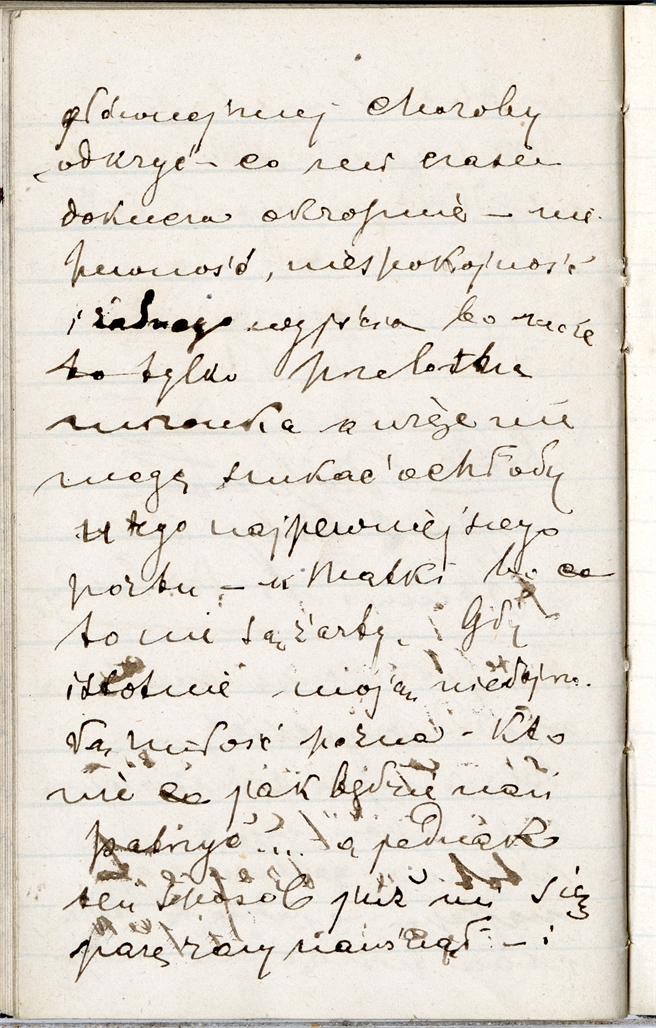 głównejszej choroby
odkryć – co mi czasem
dokucza okropnie – nie
pewność, niespokojność
i żadnego wyjścia bo może
to tylko przelotka
a więc nie
mogę szukać ochłody
u tego najpewniejszego
portu – u Matki bo co
to nie są żarty. Gdy
istotnie moją niedojrza
łą miłość pozna – Kto
wie co jak będzie nań
patrzyć... a jednak
ten sposób już mi się
parę razy nawinął – i